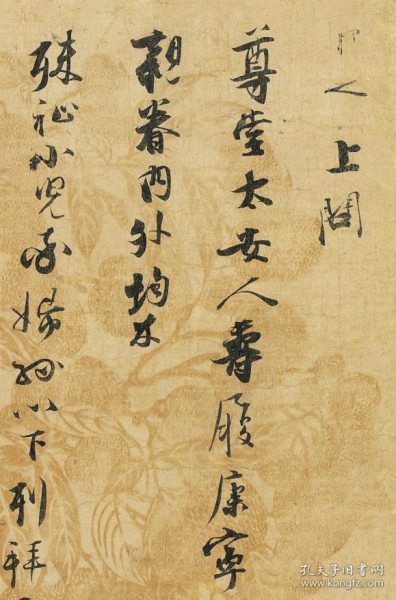 人上問
尊堂太安人壽履康寧
親眷內外均休
小兒婦以下列拜
孔夫子旧书网
www.kongfz.com